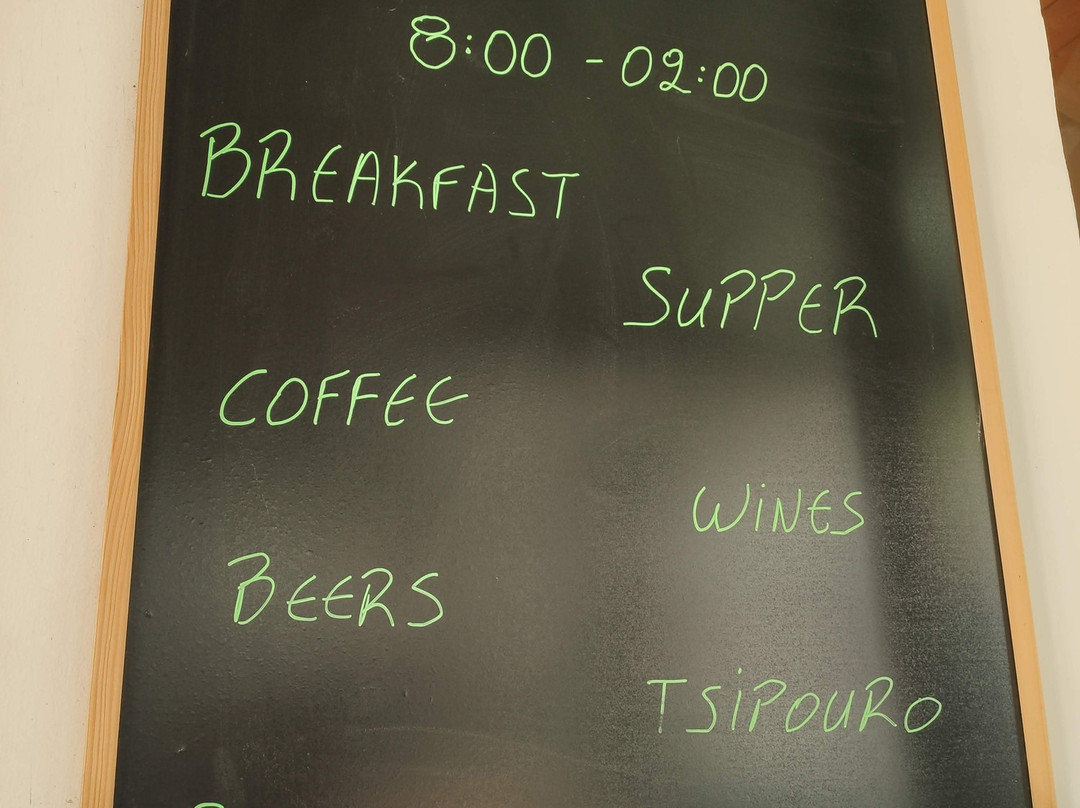 8:00 - 02:00
BREAKFAST
SUPPER
COFFEE
WiNES
BEERS
TSiPOURO